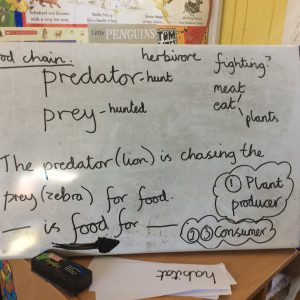 PENGUINS
food chain. herbivore fighting?
predator-hunt
meat
eat
plants
prey-hunted
The predator (lion) is chasing the
prey (zebra) for food.
__ is food for __
① Plant
producer
② ③ Consumer
habitat